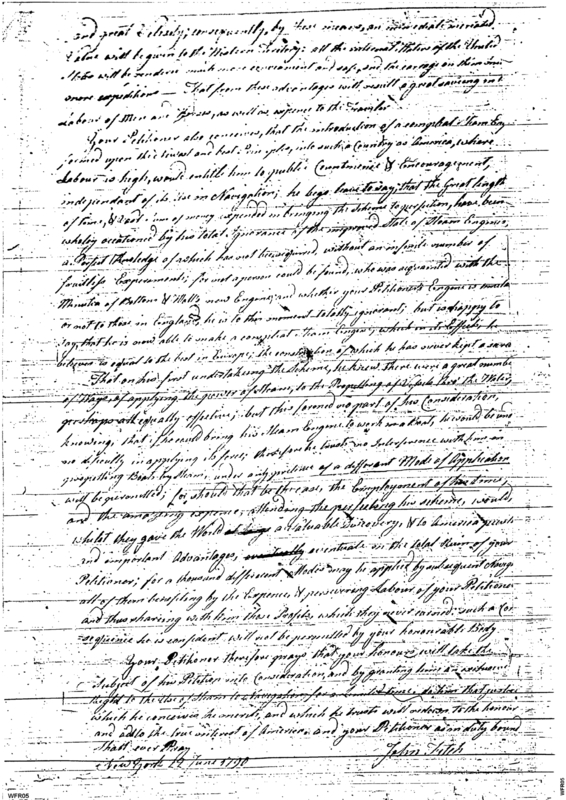 and great & clearly; consequently, by these means, an immediate increased
value will be given to the Western Territory: all the internal Waters of the United
States will be rendered much more convenient and safe, and the carriage on them
more expeditious — That from these advantages will result a great saving in
Labour of Men and Horses, as well as, expence to the Traveler
Your Petitioner also conceives, that the introduction of a compleat Steam Eng
formed upon the newest and best Principles, into such a Country as America, where
Labour is high, would entitle him to public Countenance & Encouragement,
independent of its use in Navigation; he begs leave to say, that the Great length
of time, & vast sum of money expended in bringing the Scheme to perfection, have been
wholly occasioned by his total Ignorance of the improved State of Steam Engines,
a Perfect Knowledge of which has not been acquired, without an infinite number of
fruitless Experiments; for not a person could be found, who was acquainted with the
Minutia of Bolton & Watt's new Engine; and whether your Petitioner's Engine is similar
or not to those in England, he is to this moment totally ignorant; but is happy to
say, that he is now able to make a compleat Steam Engine, which in its Effects, he
believes is equal to the best in Europe; the construction of which he has never kept a
That on his first undertaking the Scheme, he knew there were a great number
of Ways of applying the power of Steam, to the Propelling of Vessels thro' the Water
perhaps all equally effective; but this formed no part of his Consideration,
knowing, that if he could bring his Steam Engine to work in a Boat, he would be under
no difficulty in applying its force; therefore he trusts no Interference with him in
propelling Boats by Steam, under any pretence of a different Mode of Application
will be permitted; for should that be the case, the Employment of his Time,
and the amazing expence, attending the perfecting his scheme, would,
whilst they gave the World a Valuable Discovery, & to America
and important Advantages, eventually eventuate in the total Ruin of your
Petitioner; for a thousand different Modes may be applied by subsequent
all of them benefiting by the Expence, & persevering Labour of your Petitioner
and thus sharing with him those Profits, which they never earned: such a Con
sequence he is confident will not be permitted by your honorable Body
Your Petitioner therefore prays that your honours will take the
Subject of his Petition into Consideration, and by granting him an exclusive
Right to the Use of Steam to Navigation, for a limited time, do him that justice
which he conceives he merits, and which he trusts will redown to the honour
and add to the true interest of America. and your Petitioner as in duty bound
Shall ever Pray
New York 22 June 1790 John Fitch
WFR05
WFR05